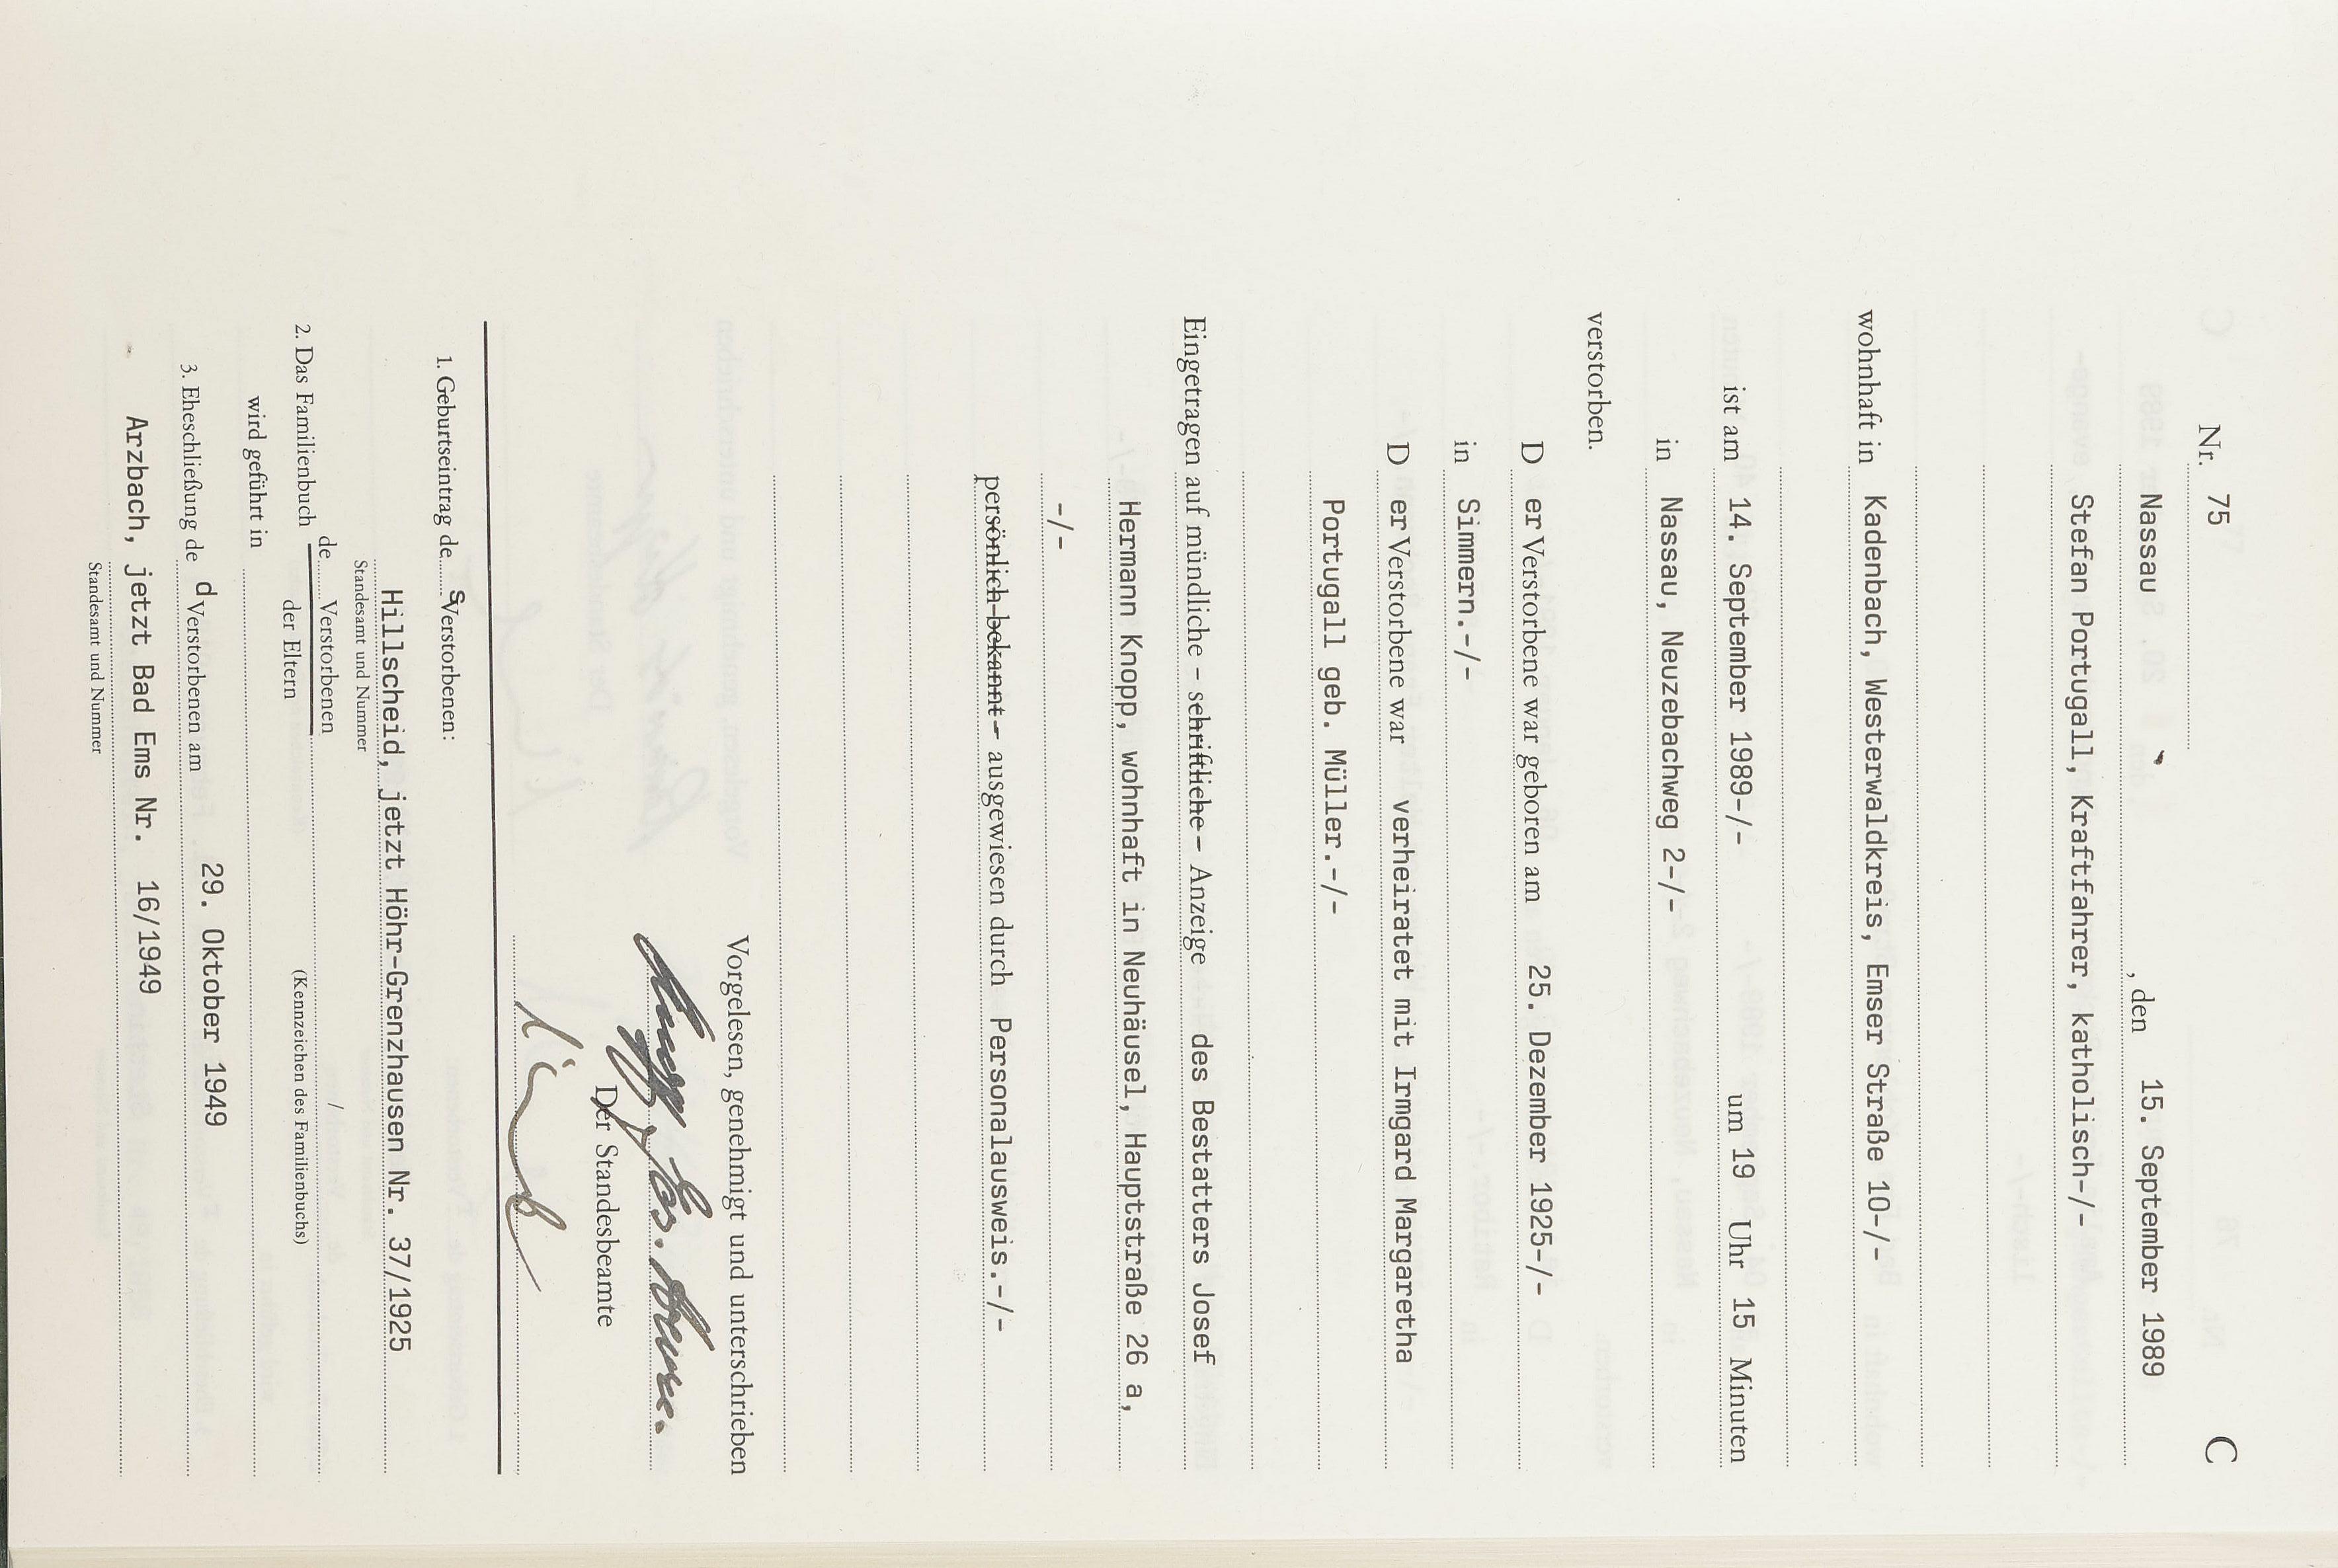 C
Nr. 75
Nassau, den 15. September 1989
Stefan Portugall, Kraftfahrer, katholisch-/-
wohnhaft in Kadenbach, Westerwaldkreis, Emser Straße 10-/-
ist am 14. September 1989-/- um 19 Uhr 15 Minuten
in Nassau, Neuzebachweg 2-/-
verstorben.
D er Verstorbene war geboren am 25. Dezember 1925-/-
in Simmern.-/-
D er Verstorbene war verheiratet mit Irmgard Margaretha
Portugall geb. Müller.-/-
Eingetragen auf mündliche – schriftliche – Anzeige des Bestatters Josef
Hermann Knopp, wohnhaft in Neuhäusel, Hauptstraße 26 a,
-/-
persönlich bekannt – ausgewiesen durch Personalausweis.-/-
Vorgelesen, genehmigt und unterschrieben
Der Standesbeamte
1. Geburtseintrag des Verstorbenen:
Hillscheid, jetzt Höhr-Grenzhausen Nr. 37/1925
Standesamt und Nummer
de Verstorbenen /
2. Das Familienbuch
der Eltern (Kennzeichen des Familienbuchs)
wird geführt in
3. Eheschließung de d Verstorbenen am 29. Oktober 1949
Arzbach, jetzt Bad Ems Nr. 16/1949
Standesamt und Nummer